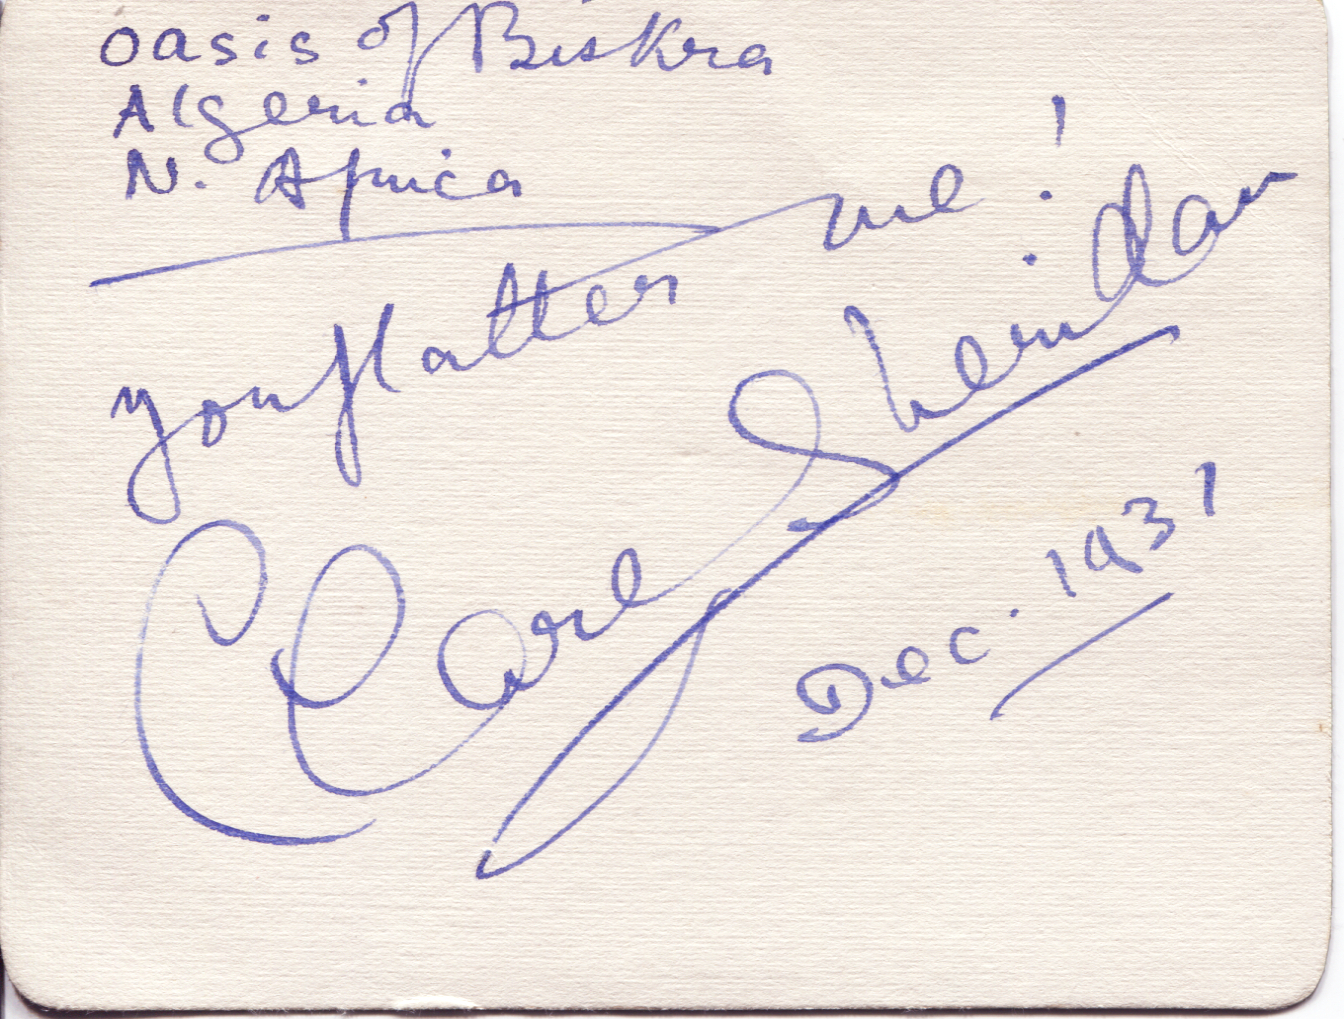 oasis of Biskra
Algeria
N. Africa
you flatter me!
Clare Sheridan
Dec. 1931